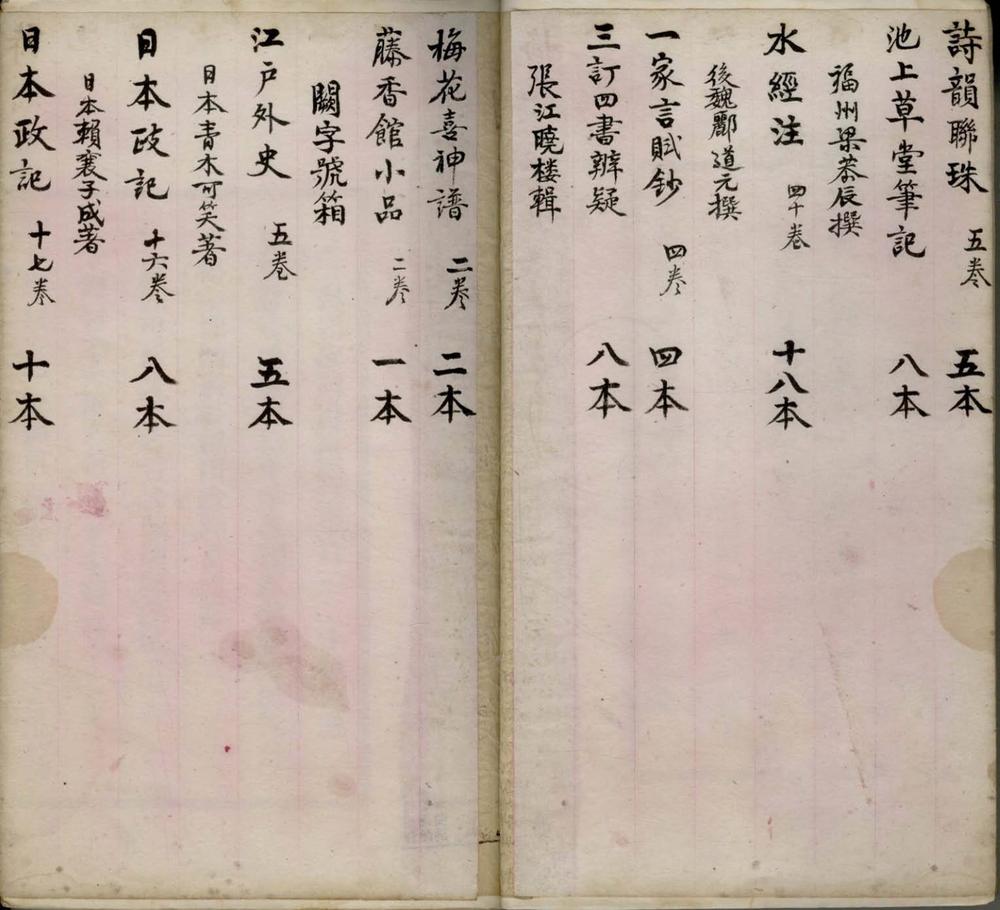 詩韻聯珠 五卷 五本
池上草堂筆記 八本
福州梁恭辰撰
水經注 四十卷 十八本
後魏酈道元撰
一家言賦鈔 四卷 四本
三訂四書辨疑 八本
張江曉楼輯
梅花喜神譜 二卷 二本
藤香館小品 二卷 一本
闕字號箱
江户外史 五卷 五本
日本青木可笑著
日本政記 十六卷 八本
日本賴襄子成著
日本政記 十七卷 十本